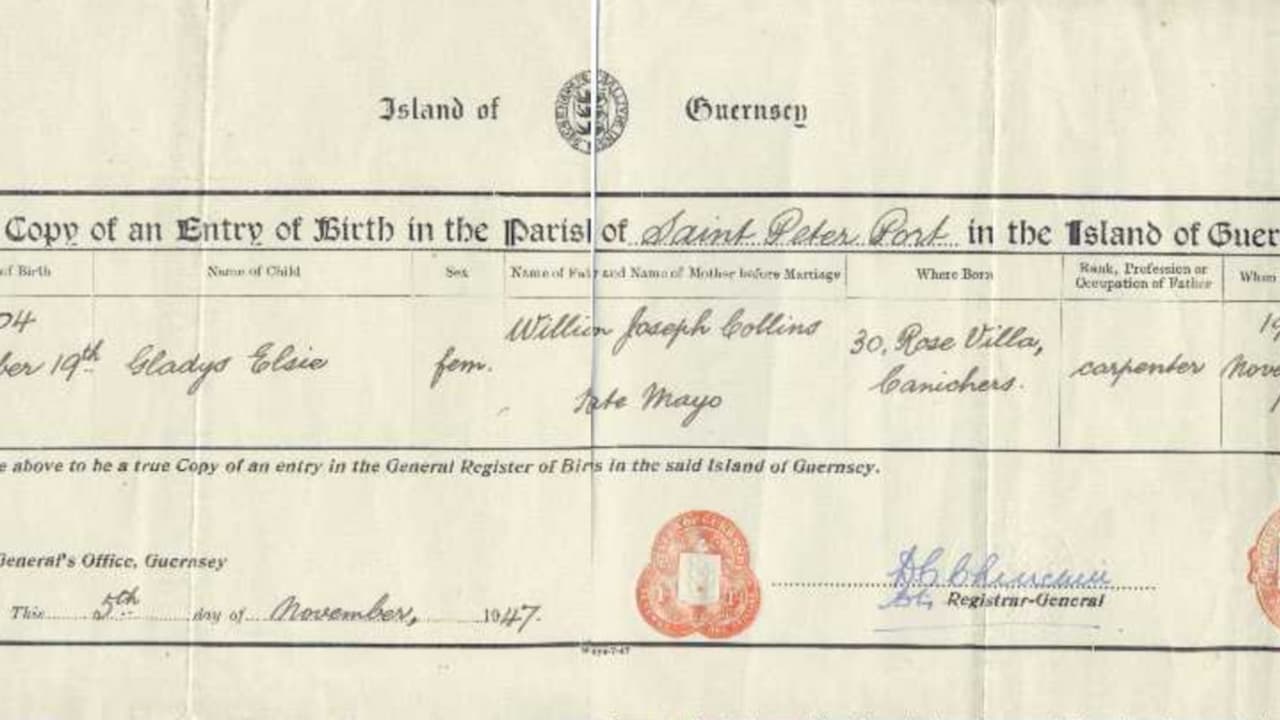 Island of Guernsey
Copy of an Entry of Birth in the Parish of Saint Peter Port in the Island of Guer
of Birth Name of Child Sex Name of and Name of Mother before Marriage Where Born Rank, Profession or Occupation of Father When
04
ber 19th Gladys Elsie fem. Joseph Collins 30, Rose Villa, Canichers. carpenter Nove
Mayo
e above to be a true Copy of an entry in the General Register of in the said Island of Guernsey.
General's Office, Guernsey
This 5th day of November, 1947.
Registrar-General